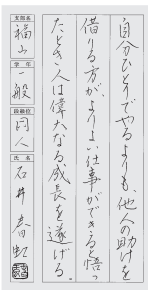 自分ひとりでやるよりも、他人の助けを
借りる方が、よりよい仕事ができると悟っ
たとき、人は偉大なる成長を遂げる。
支部名
福山
学年
一般
段級位
同人
氏名
石井春虹